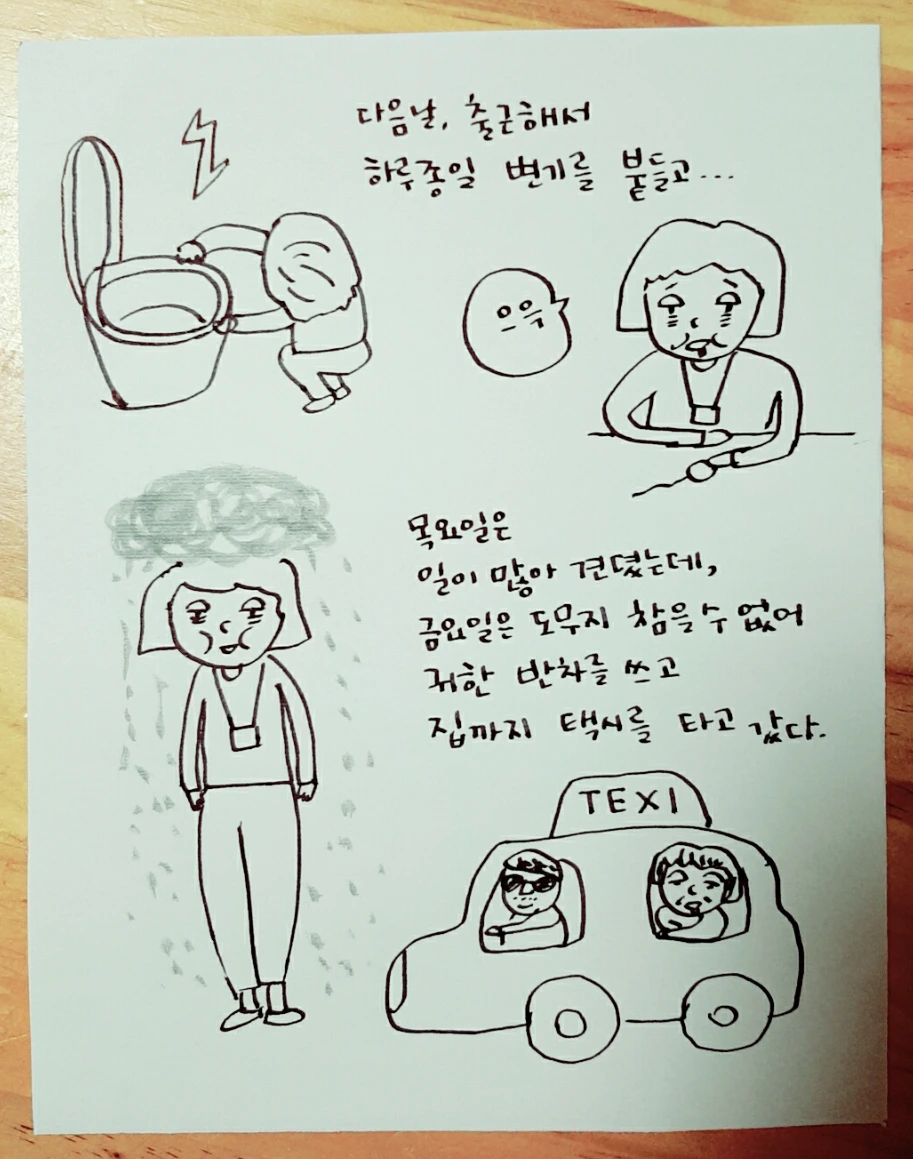 다음날, 출근해서
하루종일 변기를 붙들고...
으윽
목요일은
일이 많아 견뎠는데,
금요일은 도무지 참을 수 없어
귀한 반차를 쓰고
집까지 택시를 타고 갔다.
TEXI